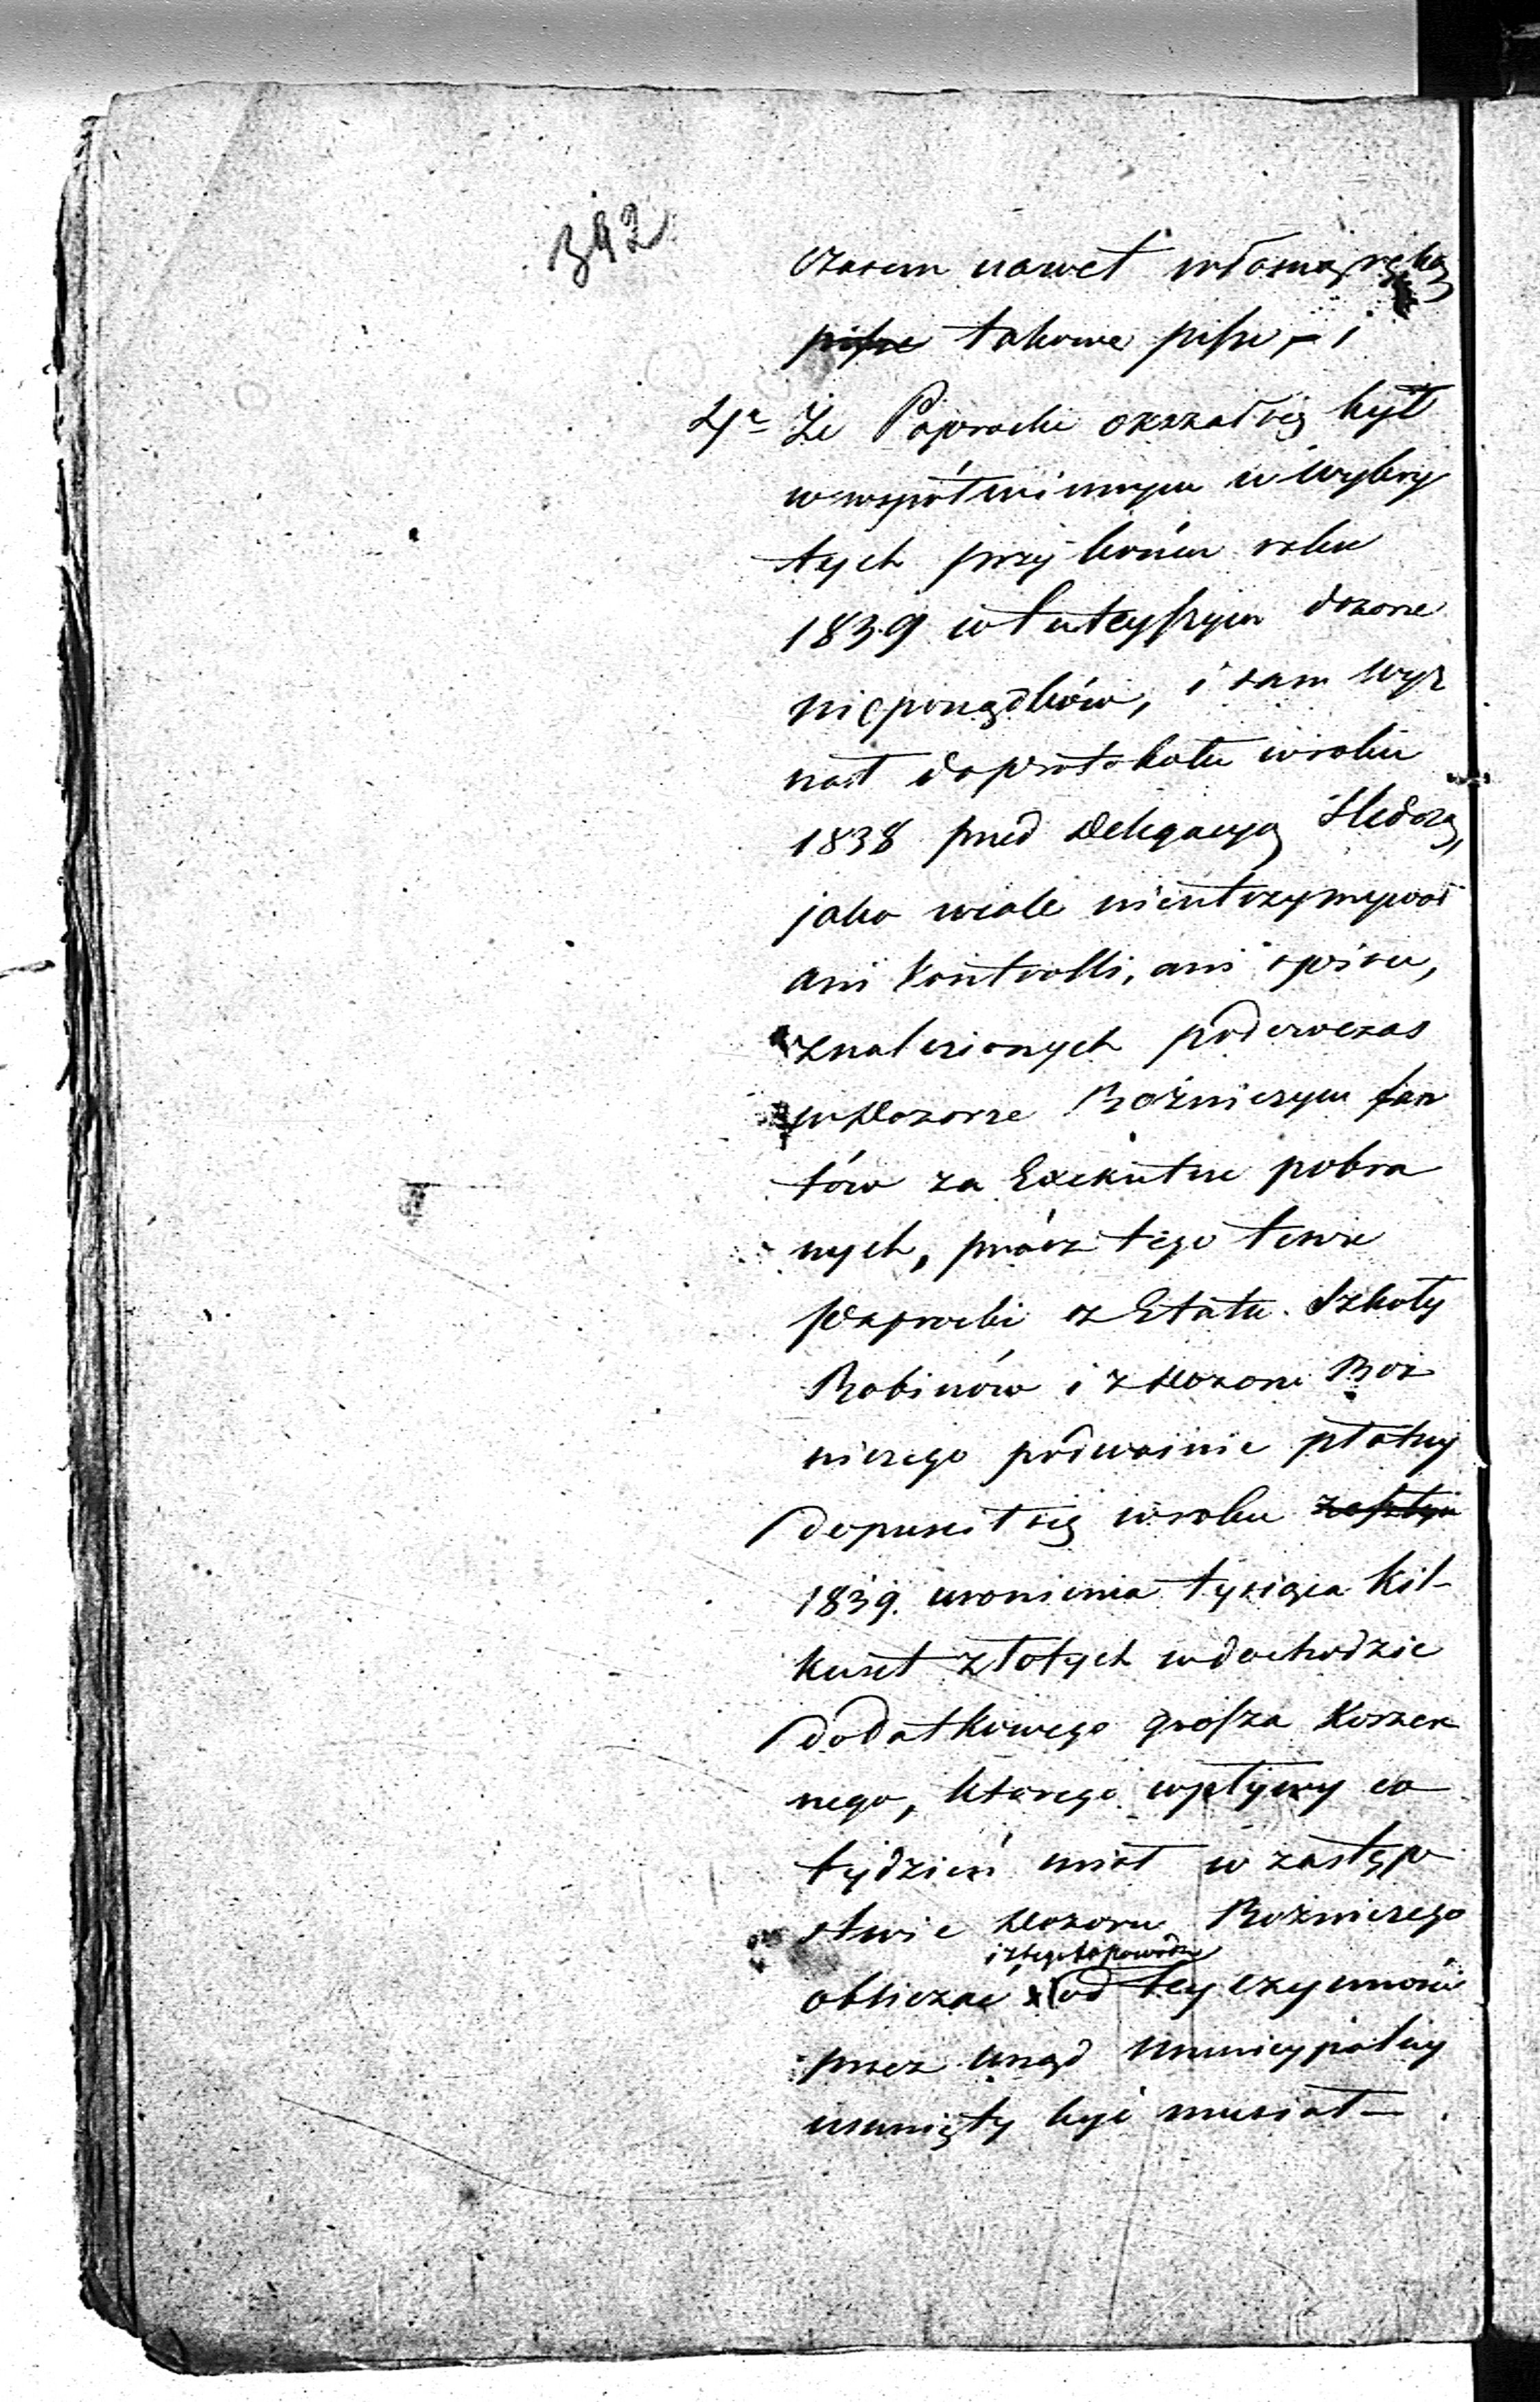 392
czasem nawet własną ręką
pisze takowe pisze, – i
4r Że Paprocki okazał się być
w współwinnym w wykry
tych przy końcu roku
1839 w tuteyszym dozorze
nieporządków, i sam wyz
nał do protokołu w roku
1838 przed Delegacyą Śledczą,
jako wcale nieutrzymywał
ani Kontrolli, ani spisu,
znalezionych podówczas
w Dozorze Bóżniczym fan
tów za Exekutne pobra
nych, prócz tego tenże
Paprocki z Etatu Szkoły
Rabinów i z Dozoru Boż
niczego podwójnie płatny
dopuścił się w roku
1839 uronienia tysiąca kil-
kuset złotych w dochodzie
dodatkowego grosza Koszer
nego, którego wpływy co
tydzień miał w zastęp
stwie Dozoru Bożniczego
i z tego to powodu
obliczać od tey czynności
przez Urząd Municypalny
usunięty być musiał –